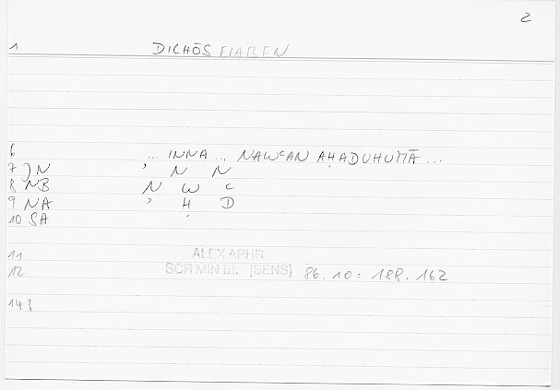 2
1 DICHŌS ELABEN
6 ... INNA ... NAWʿAN AḤADUHUMĀ ...
7 ) N ʾ N N
8 NB N W ʿ
9 NA ʾ Ḥ D
10 SA
11 ALEX APHR
12 SCR MIN III. [SENS] 86.10 : 188.162
14 ?